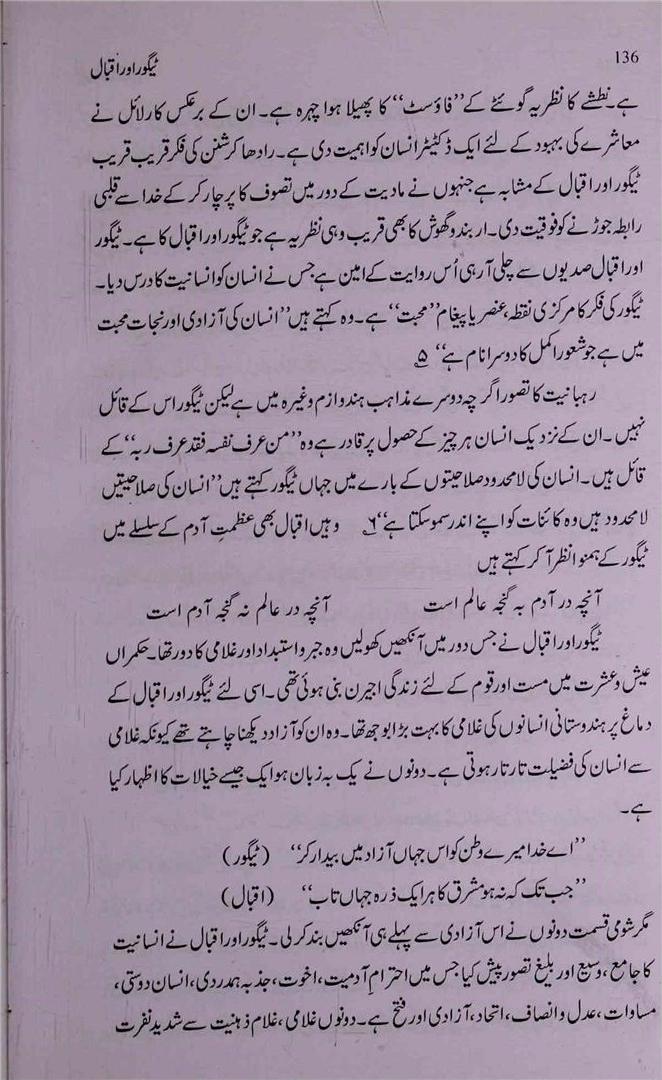 136
ٹیگور اور اقبال
ہے۔ نطشے کا نظریہ گوئٹے کے ”فاؤسٹ“ کا پھیلا ہوا چہرہ ہے۔ ان کے برعکس کارلائل نے
معاشرے کی بہبود کے لئے ایک ڈکٹیٹر انسان کو اہمیت دی ہے۔ رادھا کرشنن کی فکر قریب قریب
ٹیگور اور اقبال کے مشابہ ہے جنہوں نے مادیت کے دور میں تصوف کا پرچار کر کے خدا سے قلبی
رابطہ جوڑنے کو فوقیت دی۔ اربندو گھوش کا بھی قریب وہی نظریہ ہے جو ٹیگور اور اقبال کا ہے۔ ٹیگور
اور اقبال صدیوں سے چلی آرہی اُس روایت کے امین ہے جس نے انسان کو انسانیت کا درس دیا۔
ٹیگور کی فکر کا مرکزی نقطہ، عنصر یا پیغام ”محبت“ ہے۔ وہ کہتے ہیں ”انسان کی آزادی اور نجات محبت
میں ہے جو شعورِ اکمل کا دوسرا نام ہے“ ۵
رہبانیت کا تصور اگرچہ دوسرے مذاہب ہندوازم وغیرہ میں ہے لیکن ٹیگور اس کے قائل
نہیں۔ ان کے نزدیک انسان ہر چیز کے حصول پر قادر ہے وہ ”من عرف نفسہ فقد عرف ربہ“ کے
قائل ہیں۔ انسان کی لامحدود صلاحیتوں کے بارے میں جہاں ٹیگور کہتے ہیں ”انسان کی صلاحیتیں
لامحدود ہیں وہ کائنات کو اپنے اندر سمو سکتا ہے“ ۶ وہیں اقبال بھی عظمتِ آدم کے سلسلے میں
ٹیگور کے ہمنوا نظر آ کر کہتے ہیں
آنچہ در آدم بہ گنجہ عالم است آنچہ در عالم نہ گنجہ آدم است
ٹیگور اور اقبال نے جس دور میں آنکھیں کھولیں وہ جبر و استبداد اور غلامی کا دور تھا۔ حکمراں
عیش و عشرت میں مست اور قوم کے لئے زندگی اجیرن بنی ہوئی تھی۔ اسی لئے ٹیگور اور اقبال کے
دماغ پر ہندوستانی انسانوں کی غلامی کا بہت بڑا بوجھ تھا۔ وہ ان کو آزاد دیکھنا چاہتے تھے کیونکہ غلامی
سے انسان کی فضیلت تار تار ہوتی ہے۔ دونوں نے یک بہ زبان ہو ایک جیسے خیالات کا اظہار کیا
ہے۔
”اے خدا میرے وطن کو اس جہاں آزاد میں بیدار کر“ (ٹیگور)
”جب تک کہ نہ ہو مشرق کا ہر ایک ذرہ جہاں تاب“ (اقبال)
مگر شومی قسمت دونوں نے اس آزادی سے پہلے ہی آنکھیں بند کر لی۔ ٹیگور اور اقبال نے انسانیت
کا جامع، وسیع اور بلیغ تصور پیش کیا جس میں احترامِ آدمیت، اخوت، جذبہ ہمدردی، انسان دوستی،
مساوات، عدل و انصاف، اتحاد، آزادی اور فتح ہے۔ دونوں غلامی، غلام ذہنیت سے شدید نفرت